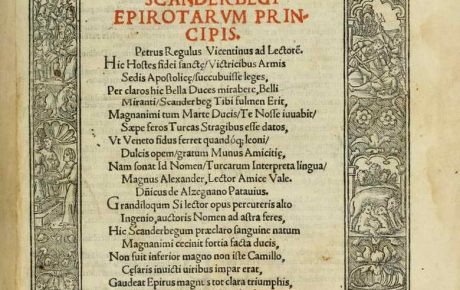 SCANDERBEGI
EPIROTARVM PRIN-
CIPIS.
Petrus Regulus Vicentinus ad Lectorē.
Hic Hostes fidei sanctę/Victricibus Armis
Sedis Apostolicę/succubuisse leges,
Per claros hic Bella Duces mirabere, Belli
Miranti/Scanderbeg Tibi fulmen Erit,
Magnanimi tum Marte Ducis/Te Nosse iuuabit/
Sæpe feros Turcas Stragibus esse datos,
Vt Veneto fidus ferret quandóq; leoni/
Dulcis opem/gratum Munus Amicitię,
Nam sonat Id Nomen/Turcarum Interpreta lingua/
Magnus Alexander, Lector Amice Vale.
Dñicus de Alzegnano Patauius.
Grandiloqum Si lector opus percurreris alto
Ingenio, auctoris Nomen ad astra feres,
Hic Scanderbegum præclaro sanguine natum
Magnanimi cecinit fortia facta ducis,
Non fuit inferior magno non iste Camillo,
Cęsaris inuicti uiribus impar erat,
Gaudeat Epirus magnus tot clara triumphis,